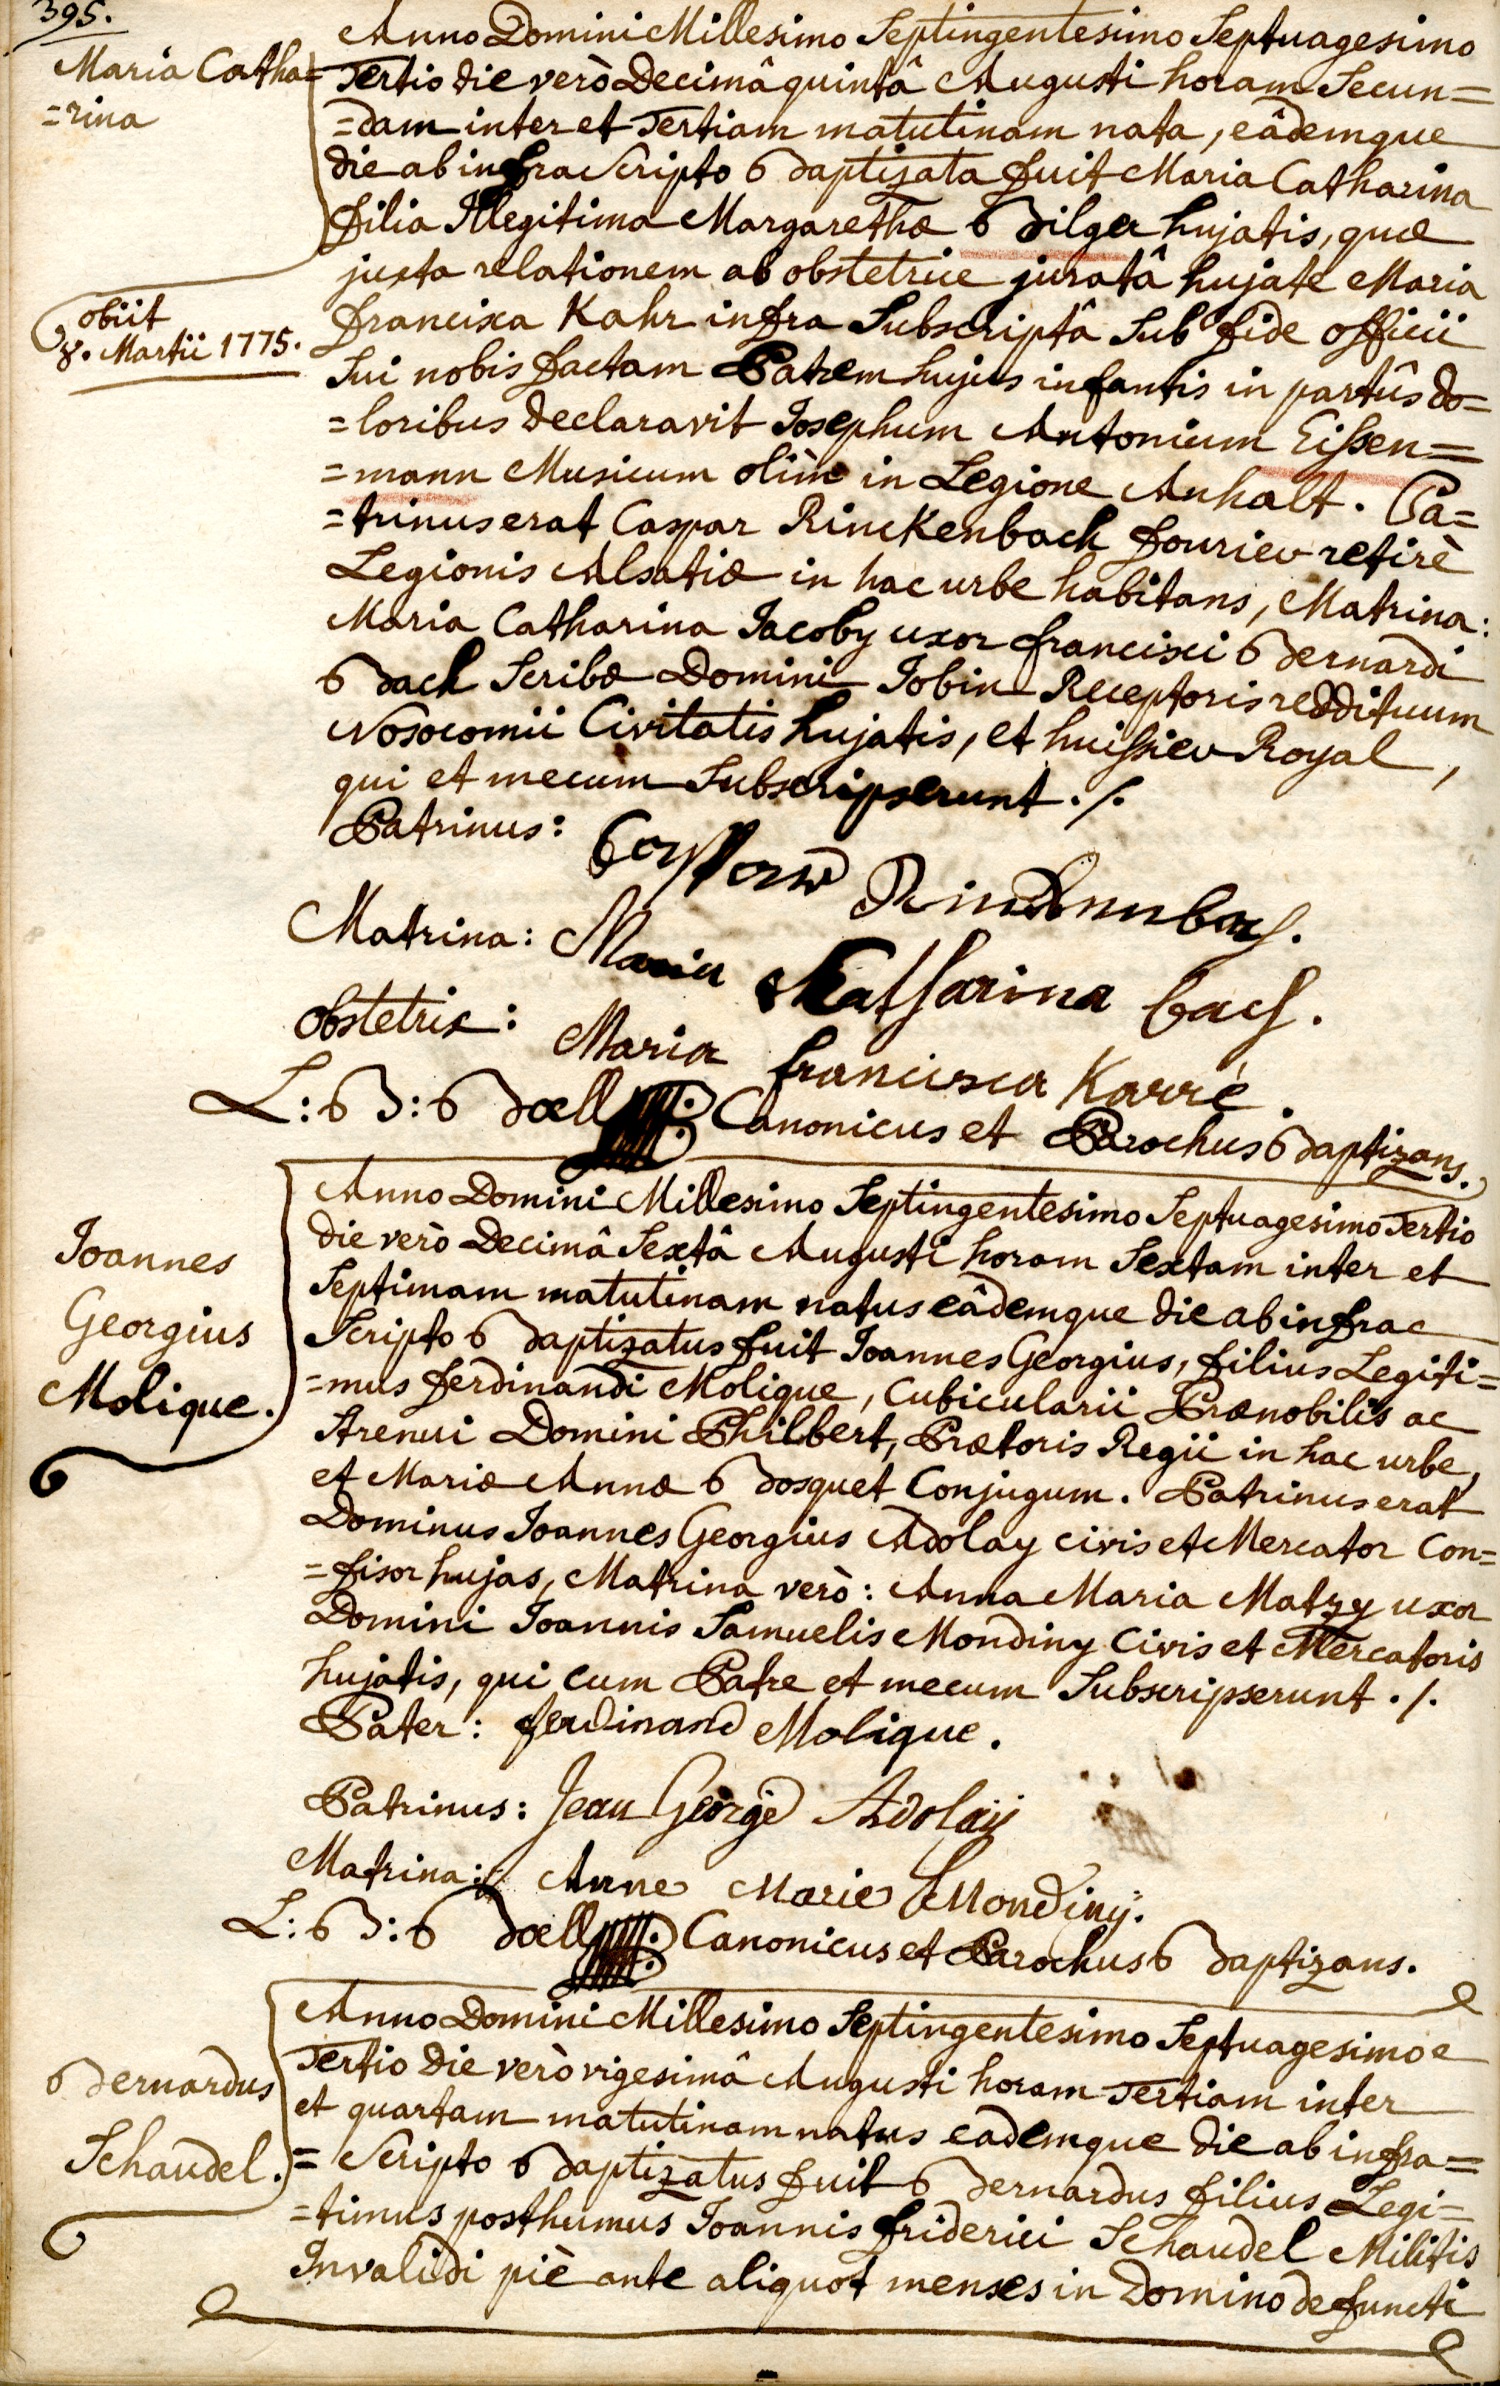 395.
Maria Catha=
=rina
Anno Domini Millesimo Septingentesimo Septuagesimo
Tertio die verò Decimâ quintâ Augusti horam Secun=
=dam inter et Tertiam matutinam nata, eâdemque
die ab infra Scripto Baptizata fuit Maria Catharina
filia Illegitima Margarethæ Bilger hujatis, quæ
juxta relationem ab obstetrice juratâ hujate Maria
Francisca Kahr infra Subscriptâ Sub fide officii
Sui nobis factam Patrem hujus infantis in partûs do=
=loribus declaravit Josephum Antonium Eissen=
=mann Musicum olim in Legione Anhalt. Pa=
=trinus erat Caspar Rinckenbach fourier retirè
Legionis Alsatiæ in hac urbe habitans, Matrina:
Maria Catharina Jacoby uxor Francisci Bernardi
Bach Scribæ Domini Jobin Receptoris reddituum
Nosocomii Civitatis hujatis, et huissier Royal,
qui et mecum Subscripserunt ./.
obiit
8. Martii 1775.
Patrinus: Rinckenbach.
Matrina: Maria Katharina bach.
obstetrix: Maria francisca Karrè.
L: B: Bœll Canonicus et Parochus Baptizans.
Joannes
Georgius
Molique.
Anno Domini Millesimo Septingentesimo Septuagesimo Tertio
die verò Decimâ Sextâ Augusti horam Sextam inter et
Septimam matutinam natus eâdemque die ab infra
Scripto Baptizatus fuit Joannes Georgius, filius Legiti=
=mus Ferdinandi Molique, Cubicularii Prænobilis ac
Strenui Domini Philbert, Prætoris Regii in hac urbe,
et Mariæ Annæ Bosquet Conjugum. Patrinus erat
Dominus Joannes Georgius Adolay civis et Mercator Con=
=fisor hujas, Matrina verò: Anna Maria Matzy uxor
Domini Joannis Samuelis Mondiny Civis et Mercatoris
hujatis, qui cum Patre et mecum Subscripserunt ./.
Pater: ferdinand Molique.
Patrinus: Jean George Adolaÿ
Matrina: Anne Marie Mondinÿ.
L: B: Bœll Canonicus et Parochus Baptizans.
Bernardus
Schaudel.
Anno Domini Millesimo Septingentesimo Septuagesimo
Tertio die verò vigesimâ Augusti horam Tertiam inter
et quartam matutinam natus eademque die ab infra=
=Scripto Baptizatus fuit Bernardus filius Legi=
=timus posthumus Joannis Friderici Schaudel Militis
Invalidi piè ante aliquot menses in Domino defuncti